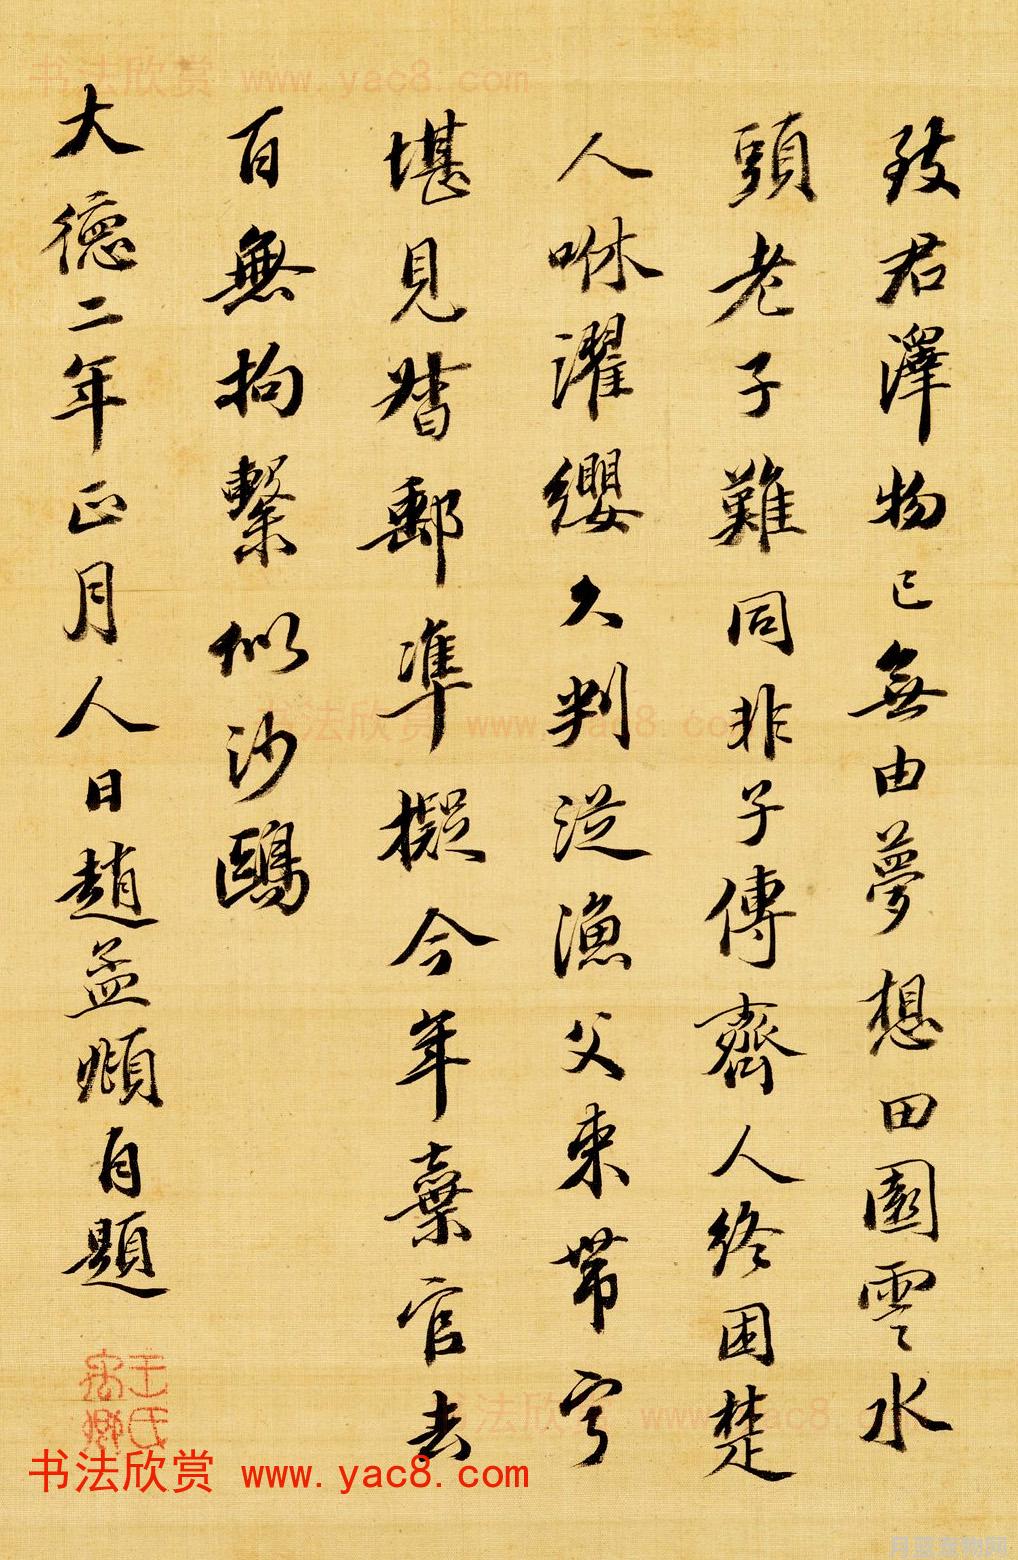 致君澤物已無由夢想田園雲水
頭老子難同非子傳齊人終困楚
人咻濯纓久判從漁父束帶寧
堪見督郵凖擬今年棄官去
百無拘繫似沙鷗
大德二年正月人日趙孟頫自題
王氏禹卿
书法欣赏 www.yac8.com
书法欣赏 www.yac8.com
书法欣赏 www.yac8.com
书法欣赏 www.yac8.com